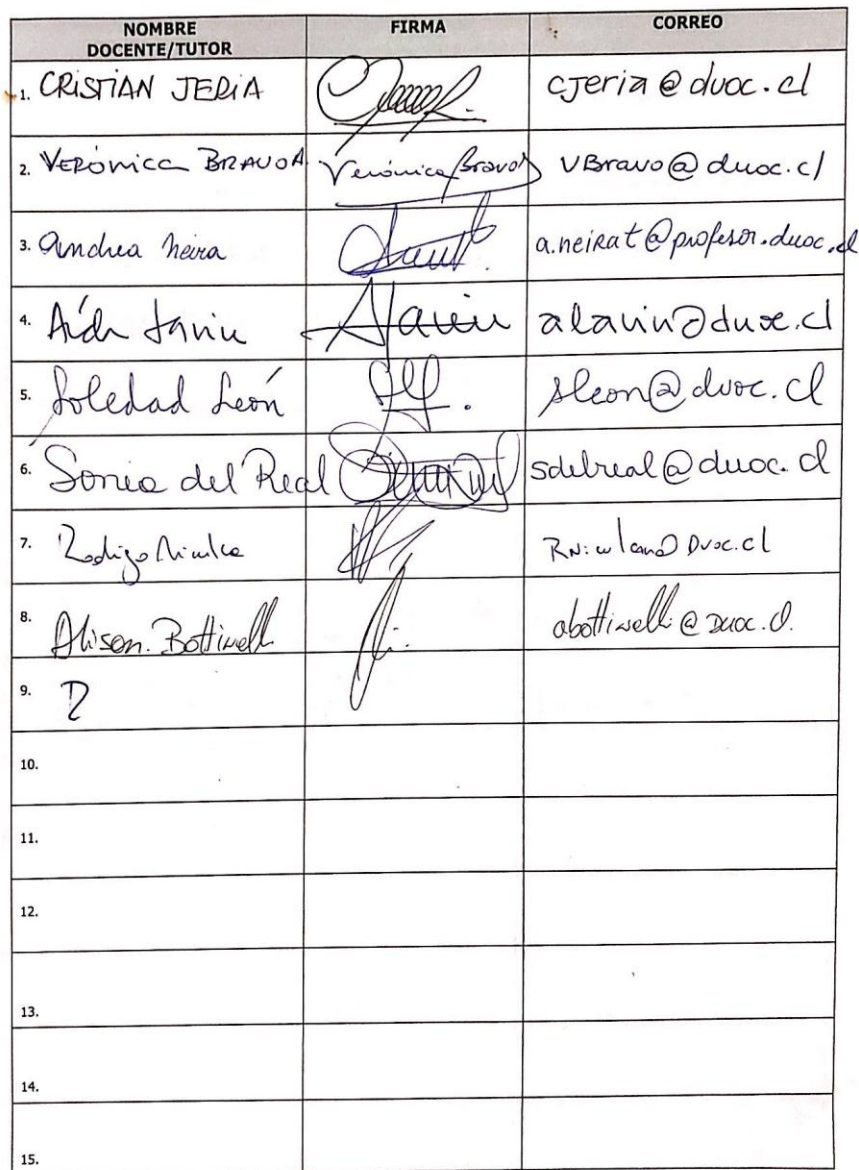 NOMBRE DOCENTE/TUTOR FIRMA CORREO
1. CRISTIAN JERIA cjeria@duoc.cl
2. VERÓNICA BRAVO A. Verónica Bravo VBravo@duoc.cl
3. Andrea Neira a.neirat@profesor.duoc.cl
4. Aída Lavín alavin@duoc.cl
5. Soledad León sleon@duoc.cl
6. Sonia del Real sdelreal@duoc.cl
7. Rodrigo
8. Alison. Bottinelli abottinelli@Duoc.cl.
9. D
10.
11.
12.
13.
14.
15.